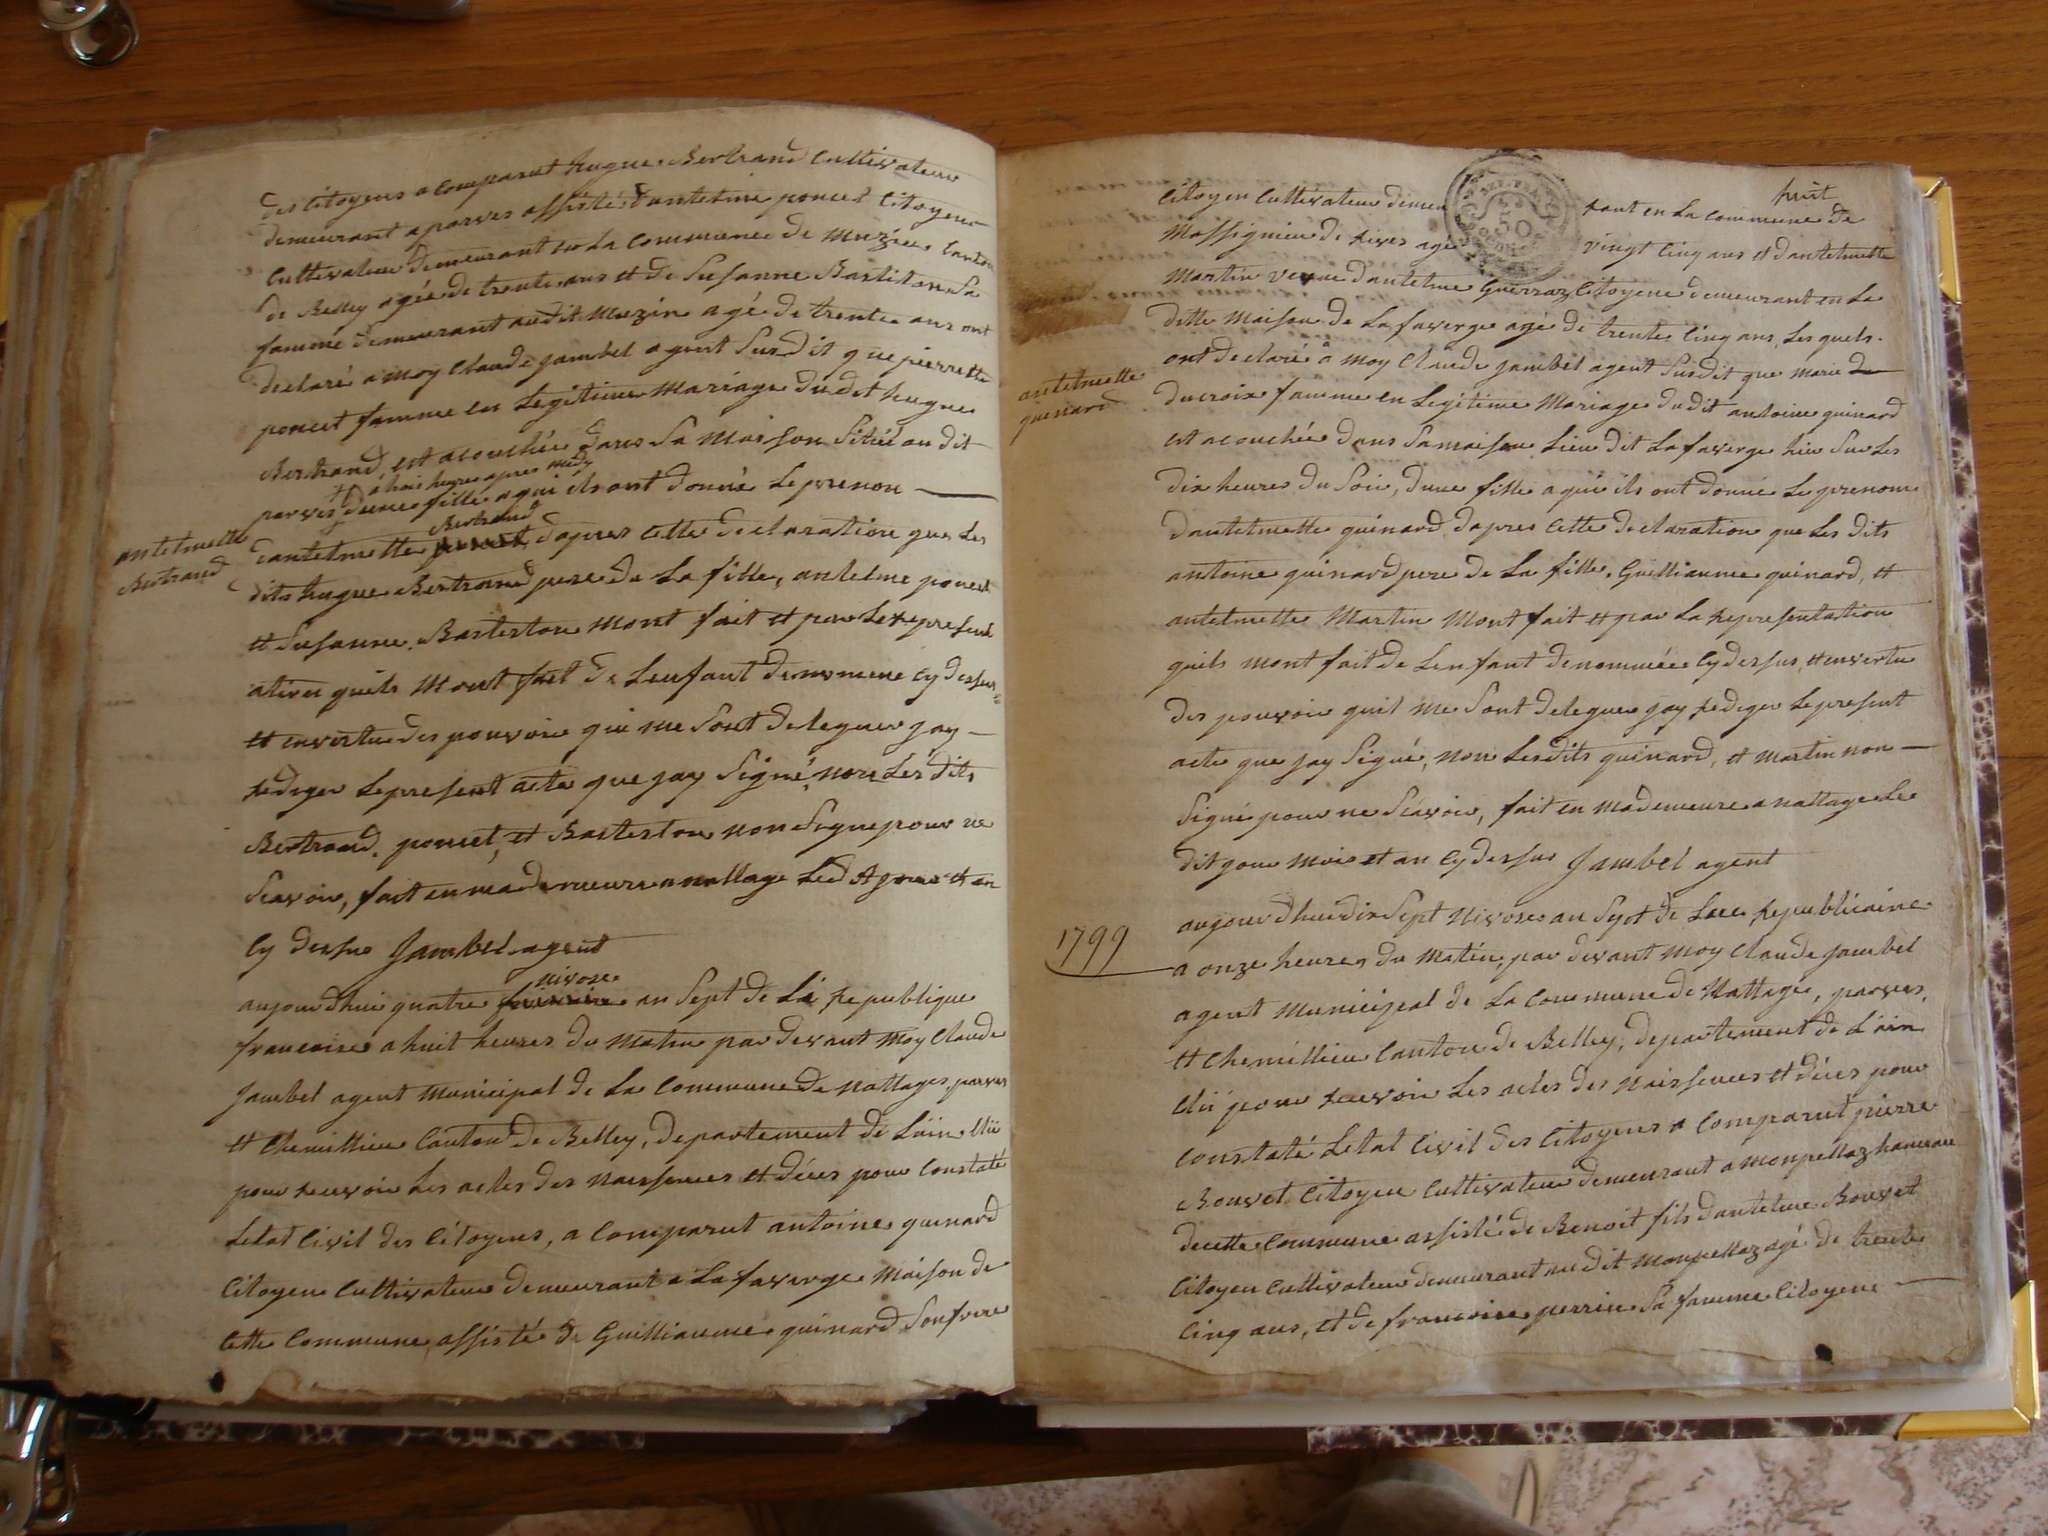 des citoyens a comparut hugue Bertrand cultivateur
demeurant a parves assisté d'antelme poncet citoyen
cultivateur demeurant en la commune de Muzin canton
de Belley agée de trente ans et de Susanne Bastiston sa
famme demeurant audit Muzin agé de trente ans ont
declaré a moy Claude jambel agent susdit que pierrette
poncet famme en Legitime Mariage dudit hugue
Bertrand, est acouchée dans sa Maison Sitüé au dit
a trois heures apres midy
parves d'une fille a qui ils ont donné Le prenon
Bertrand
antelmette
Bertrand
dantelmette d'apres cette declaration que Les
dits hugue Bertrand pere de La fille, antelme poncet
et Susanne Basterton Mont fait et par La represent
ation quils Mont fait de Lenfant denommé cy dessus
et en vertu des pouvoir qui me Sont deleguer jay
rediger Le present acte que jay Signé, non Les dits
Bertrand, poncet, et Basterton non Signe pour ne
Scavoir, fait en ma demeure a nattage Led et an
cy dessus Jambel agent
nivose
aujourdhui quatre an Sept de La Republique
francoise a huit heures du Matin par devant Moy Claude
Jambel agent Municipal de La Commune de nattages, parves
et Chemillieu Canton de Belley, departement de Lain Elü
pour recevoir Les actes des Naissences et décés pour Constaté
Letat Civil des Citoyens, a Comparut antoine quinard
Citoyen Cultivateur demeurant a La faverge Maison de
Cette Commune assisté de Guilliaume quinard Son frere
huit
Citoyen Cultivateur demeu rant en La Commune de
Massignieu de rives agé vingt Cinq ans et dantelmette
Martin veuve dantelme Guerraz Citoyene demeurant en La
ditte Maison de La faverge agé de trente Cinq ans, Les quels
ont declaré a Moy Claude jambel agent Susdit que Marie
antelmette
quinard
Ducroix famme en Legitime Mariage du dit antoine quinard
est acouchée dans Sa maison Lieu dit La faverge hier Sur Les
dix heures du Soir, dune fille a qui ils ont donné Le prenom
dantelmette quinard, dapres Cette declaration que Les dits
antoine quinard pere de La fille, Guilliaume quinard, et
antelmette Martin Mont fait et par La representation
quils mont fait de Lenfant denommée cy dessus, et en vertu
des pouvoir quil me Sont deleguer jay rediger Le present
acte que jay Signé, non Lesdits quinard, et Martin non
Signé pour ne Scavoir, fait en Ma demeure a nattage Le
dit jour Mois et an cy dessus Jambel agent
1799
aujourdhui dix Sept Nivose an Sept de Lere Republicaine
a onze heures du Matin, par devant Moy Claude Jambel
agent Municipal de La Commune de Nattage, parves,
et Chemillieu Canton de Belley, departement de Lain
Elü pour recevoir Les actes des Naissences et décés pour
Constaté Letat Civil des Citoyens a Comparut pierre
Bouvet Citoyen Cultivateur demeurant a Monpellaz hameau
de cette Commune assisté de Benoit fils dantelme Bouvet
Citoyen Cultivateur demeurant au dit Monpellaz agé de trente
Cinq ans, et de francoise perrin Sa famme Citoyene